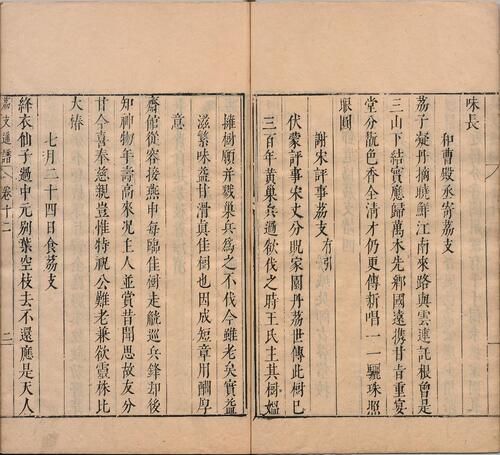 味長
和曹殿丞寄荔支
荔子凝丹摘曉鮮江南來路與雲連託根曾是
三山下結實應歸萬木先鄉國遠攜甘旨重宴
堂分翫色香全清才仍更傳新唱一一驪珠照
眼圓
謝宋評事荔支有引
伏蒙評事宋丈分貺家園丹荔世傳此樹已
三百年黃巢兵過欲伐之時王氏主其樹媼
擁樹願并戮巢兵為之不伐今雖老矣實益
滋繁味益甘滑真佳樹也因成短章用酬厚
意
齋館從容接燕申每臨佳樹走觥巡兵鋒却後
知神物年壽高來况主人並賞昔聞思故友分
甘今喜奉慈親豈惟特祝公難老兼欲靈株比
大椿
七月二十四日食荔支
絳衣仙子過中元別葉空枝去不還應是天人
荔支通譜
卷十二
二